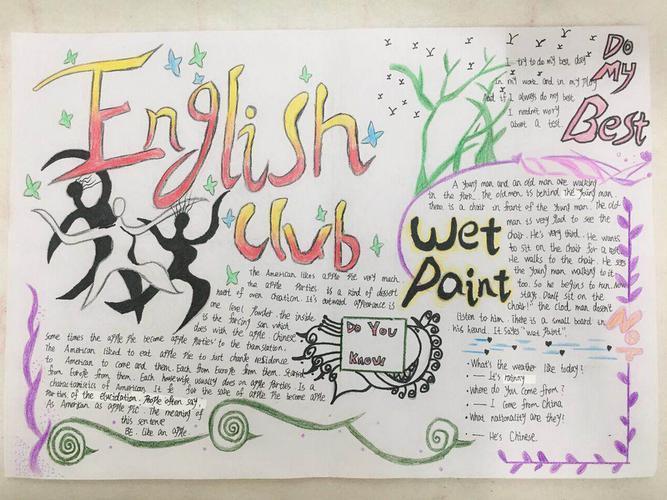 English
Club
Do
My
Best
I try to do my best day
in my work and in my play
And if I always do my best
I needn't worry
about a test.
Wet
Paint
A young man and an old man are walking
in the park. The old men is behind the young man.
There is a chair in front of the young man. The old
man is very glad to see the
chair. He's very tired. He wants
to sit on the chair for a
He walks to the chair. He sees
the young man walking to it
too. So he begins to run.
stay. Don't sit on the
chair!" the old man doesn't
listen to him. There is a small board in
his heard. It says "wet paint".
Not
·What's the weather like today?
— It's rainy
·Where do you come from?
— I come from China
·What nationality are they?
— He's Chinese.
Do You
Know
The American likes apple pie very much.
the apple Parties is a kind of dessert
heart of oven creation. It's outward appearance is
one level powder. the inside
is the farcing san which
does with the apple. Chinese
some times the apple pie become apple parties' to the translation.
The American liked to eat apple pie to just change residence
to American to come and them. Each from Europe from them. Started
from Europe from them. Each housewife usually does on apple parties. Is a
characteristics of American. It is for the sake of apple pie become apple
Parties of the elucidation. People often say
As American as apple pie. The meaning of
this sentence
BE. like an apple.